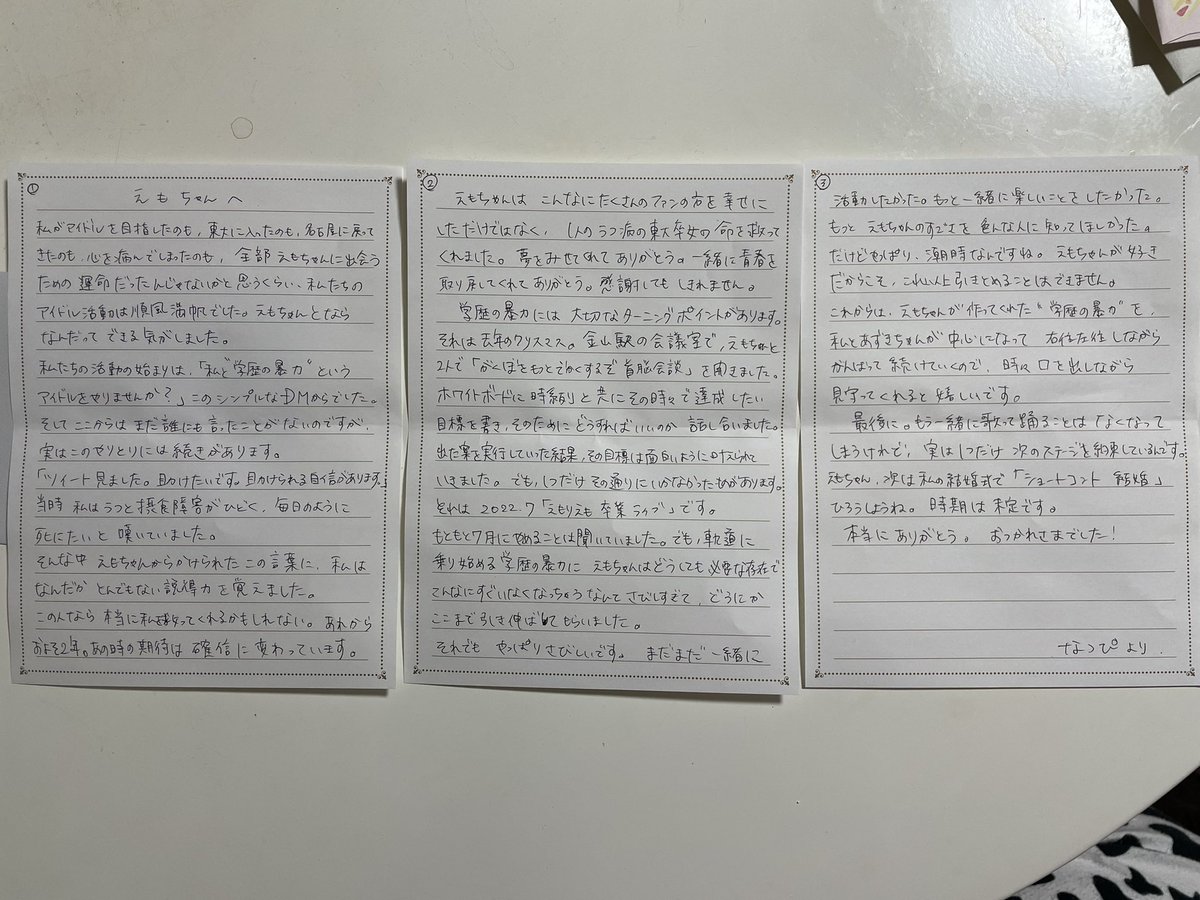 ①
えもちゃんへ
私がアイドルを目指したのも、東大に入ったのも、名古屋に戻って
きたのも、心を病んでしまったのも、全部えもちゃんに出会う
ための運命だったんじゃないかと思うくらい、私たちの
アイドル活動は順風満帆でした。えもちゃんとなら
なんだってできる気がしました。
私たちの活動の始まりは、「私と"学歴の暴力"という
アイドルをやりませんか？」このシンプルなDMからでした。
そしてここからはまだ誰にも言ったことがないのですが、
実はこのやりとりには続きがあります。
「ツイート見ました。助けたいです。助けられる自信があります。」
当時私はうつと摂食障害がひどく、毎日のように
死にたいと嘆いていました。
そんな中えもちゃんからかけられたこの言葉に、私は
なんだかとんでもない説得力を覚えました。
この人なら本当に私を救ってくれるかもしれない。あれから
およそ2年。あの時の期待は確信に変わっています。
②
えもちゃんは こんなにたくさんのファンの方を幸せに
しただけではなく、1人のうつ病の東大卒女の命を救って
くれました。夢をみせてくれてありがとう。一緒に青春を
取り戻してくれてありがとう。感謝してもしきれません。
学歴の暴力には大切なターニングポイントがあります。
それは去年のクリスマス。金山駅の会議室で、えもちゃんと
2人で「がくぼをもっとでかくするぞ首脳会談」を開きました。
ホワイトボードに時系列と共にその時々で達成したい
目標を書き、そのためにどうすればいいのか話し合いました。
出た案を実行していった結果、その目標は面白いように叶えられて
いきました。でも、1つだけその通りにいかなかったものがあります。
それは2022.7「えもりえも卒業ライブ」です。
もともと7月にやめることは聞いていました。でも、軌道に
乗り始める学歴の暴力にえもちゃんはどうしても必要な存在で
こんなにすぐいなくなっちゃうなんてさびしすぎて、どうにか
ここまで引き伸ばしてもらいました。
それでも やっぱりさびしいです。 まだまだ一緒に
③
活動したかった。もっと一緒に楽しいことをしたかった。
もっとえもちゃんのすごさを色んな人に知ってほしかった。
だけどやっぱり、潮時なんですね。えもちゃんが好き
だからこそ、これ以上引きとめることはできません。
これからは、えもちゃんが作ってくれた"学歴の暴力"を、
私とあずきちゃんが中心になって 右往左往しながら
がんばって続けていくので、時々口を出しながら
見守ってくれると嬉しいです。
最後に。もう一緒に歌って踊ることはなくなって
しまうけれど、実は1つだけ次のステージを約束しているんです。
えもちゃん、次は私の結婚式で「ショートコント 結婚」
ひろうしようね。時期は未定です。
本当にありがとう。おつかれさまでした！
なつぴより.